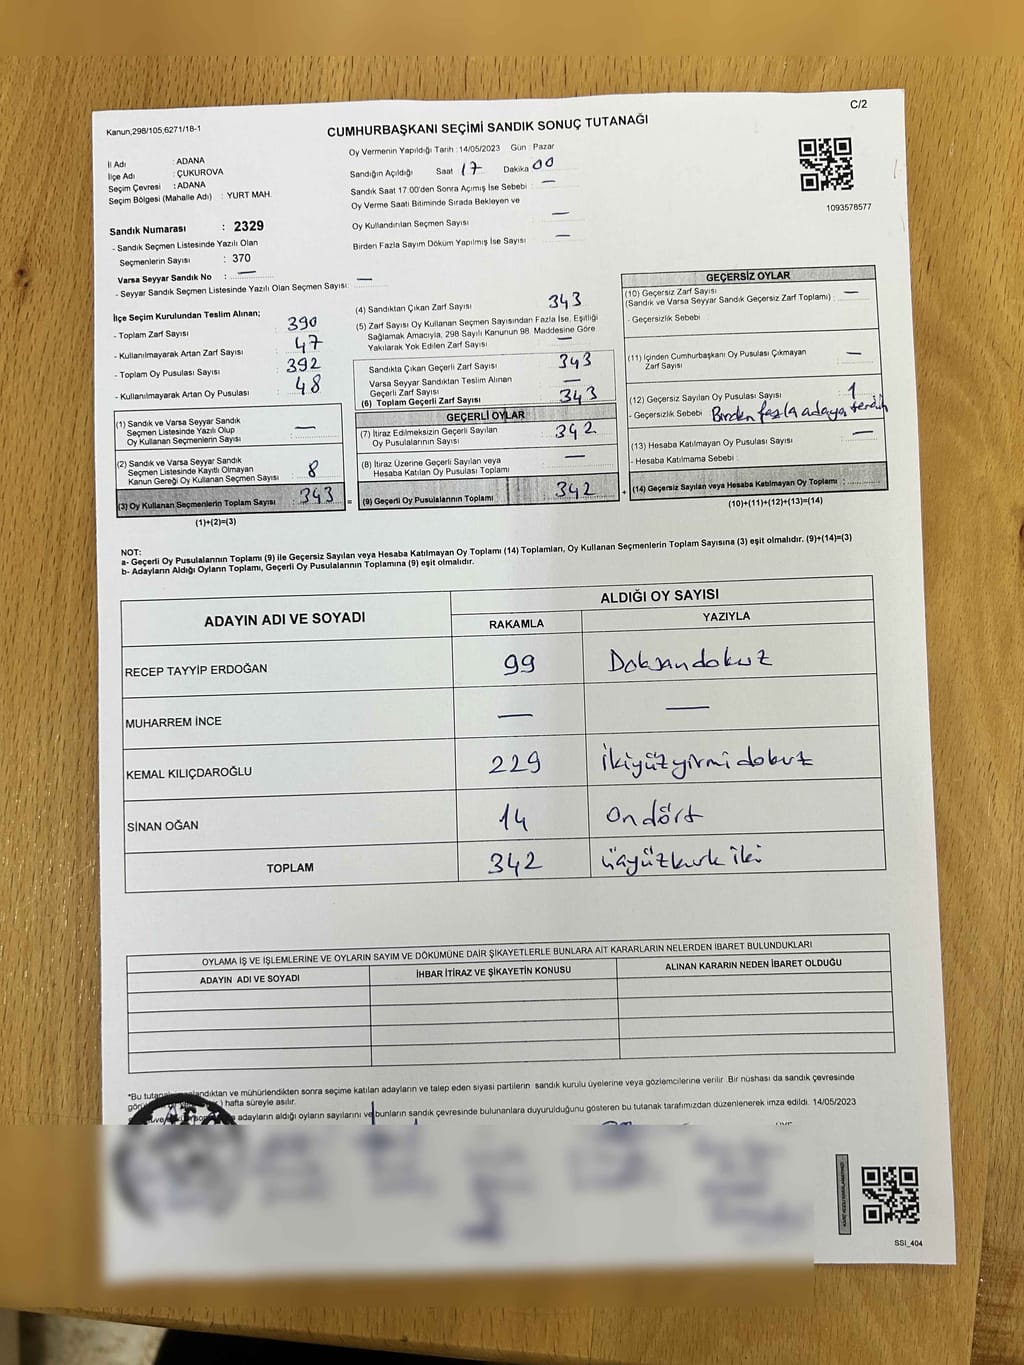 Kanun,298/105,6271/18-1
C/2
CUMHURBAŞKANI SEÇİMİ SANDIK SONUÇ TUTANAĞI
İl Adı : ADANA
İlçe Adı : ÇUKUROVA
Seçim Çevresi : ADANA
Seçim Bölgesi (Mahalle Adı) : YURT MAH.
Oy Vermenin Yapıldığı Tarih : 14/05/2023 Gün : Pazar
Sandığın Açıldığı Saat : 17 Dakika 00
Sandık Saat 17.00'den Sonra Açımış İse Sebebi : —
Oy Verme Saati Bitiminde Sırada Bekleyen ve
Oy Kullandırılan Seçmen Sayısı —
Birden Fazla Sayım Döküm Yapılmış İse Sayısı —
1093578577
Sandık Numarası : 2329
- Sandık Seçmen Listesinde Yazılı Olan
Seçmenlerin Sayısı : 370
Varsa Seyyar Sandık No : —
- Seyyar Sandık Seçmen Listesinde Yazılı Olan Seçmen Sayısı: —
İlçe Seçim Kurulundan Teslim Alınan;
- Toplam Zarf Sayısı 390
- Kullanılmayarak Artan Zarf Sayısı 47
- Toplam Oy Pusulası Sayısı 392
- Kullanılmayarak Artan Oy Pusulası 48
(1) Sandık ve Varsa Seyyar Sandık
Seçmen Listesinde Yazılı Olup
Oy Kullanan Seçmenlerin Sayısı —
(2) Sandık ve Varsa Seyyar Sandık
Seçmen Listesinde Kayıtlı Olmayan
Kanun Gereği Oy Kullanan Seçmen Sayısı 8
(3) Oy Kullanan Seçmenlerin Toplam Sayısı : 343 =
(1)+(2)=(3)
(4) Sandıktan Çıkan Zarf Sayısı 343
(5) Zarf Sayısı Oy Kullanan Seçmen Sayısından Fazla İse, Eşitliği
Sağlamak Amacıyla, 298 Sayılı Kanunun 98. Maddesine Göre
Yakılarak Yok Edilen Zarf Sayısı —
Sandıkta Çıkan Geçerli Zarf Sayısı 343
Varsa Seyyar Sandıktan Teslim Alınan
Geçerli Zarf Sayısı —
(6) Toplam Geçerli Zarf Sayısı 343
GEÇERLİ OYLAR
(7) İtiraz Edilmeksizin Geçerli Sayılan
Oy Pusulalarının Sayısı 342
(8) İtiraz Üzerine Geçerli Sayılan veya
Hesaba Katılan Oy Pusulası Toplamı —
(9) Geçerli Oy Pusulalarının Toplamı 342 +
GEÇERSİZ OYLAR
(10) Geçersiz Zarf Sayısı
(Sandık ve Varsa Seyyar Sandık Geçersiz Zarf Toplamı) : —
- Geçersizlik Sebebi :
(11) İçinden Cumhurbaşkanı Oy Pusulası Çıkmayan
Zarf Sayısı —
(12) Geçersiz Sayılan Oy Pusulası Sayısı 1
- Geçersizlik Sebebi Birden fazla adaya tercih
(13) Hesaba Katılmayan Oy Pusulası Sayısı —
- Hesaba Katılmama Sebebi :
(14) Geçersiz Sayılan veya Hesaba Katılmayan Oy Toplamı :
(10)+(11)+(12)+(13)=(14)
NOT:
a- Geçerli Oy Pusulalarının Toplamı (9) ile Geçersiz Sayılan veya Hesaba Katılmayan Oy Toplamı (14) Toplamları, Oy Kullanan Seçmenlerin Toplam Sayısına (3) eşit olmalıdır. (9)+(14)=(3)
b- Adayların Aldığı Oyların Toplamı, Geçerli Oy Pusulalarının Toplamına (9) eşit olmalıdır.
ADAYIN ADI VE SOYADI
ALDIĞI OY SAYISI
RAKAMLA YAZIYLA
RECEP TAYYİP ERDOĞAN 99 Doksandokuz
MUHARREM İNCE — —
KEMAL KILIÇDAROĞLU 229 İkiyüzyirmidokuz
SİNAN OĞAN 14 Ondört
TOPLAM 342 üçyüzkırk iki
OYLAMA İŞ VE İŞLEMLERİNE VE OYLARIN SAYIM VE DÖKÜMÜNE DAİR ŞİKAYETLERLE BUNLARA AİT KARARLARIN NELERDEN İBARET BULUNDUKLARI
ADAYIN ADI VE SOYADI İHBAR İTİRAZ VE ŞİKAYETİN KONUSU ALINAN KARARIN NEDEN İBARET OLDUĞU
*Bu andıktan ve mühürlendikten sonra seçime katılan adayların ve talep eden siyasi partilerin sandık kurulu üyelerine veya gözlemcilerine verilir. Bir nüshası da sandık çevresinde
hafta süreyle asılır.
adayların aldığı oyların sayılarını ve bunların sandık çevresinde bulunanlara duyurulduğunu gösteren bu tutanak tarafımızdan düzenlenerek imza edildi. 14/05/2023
SSI_404